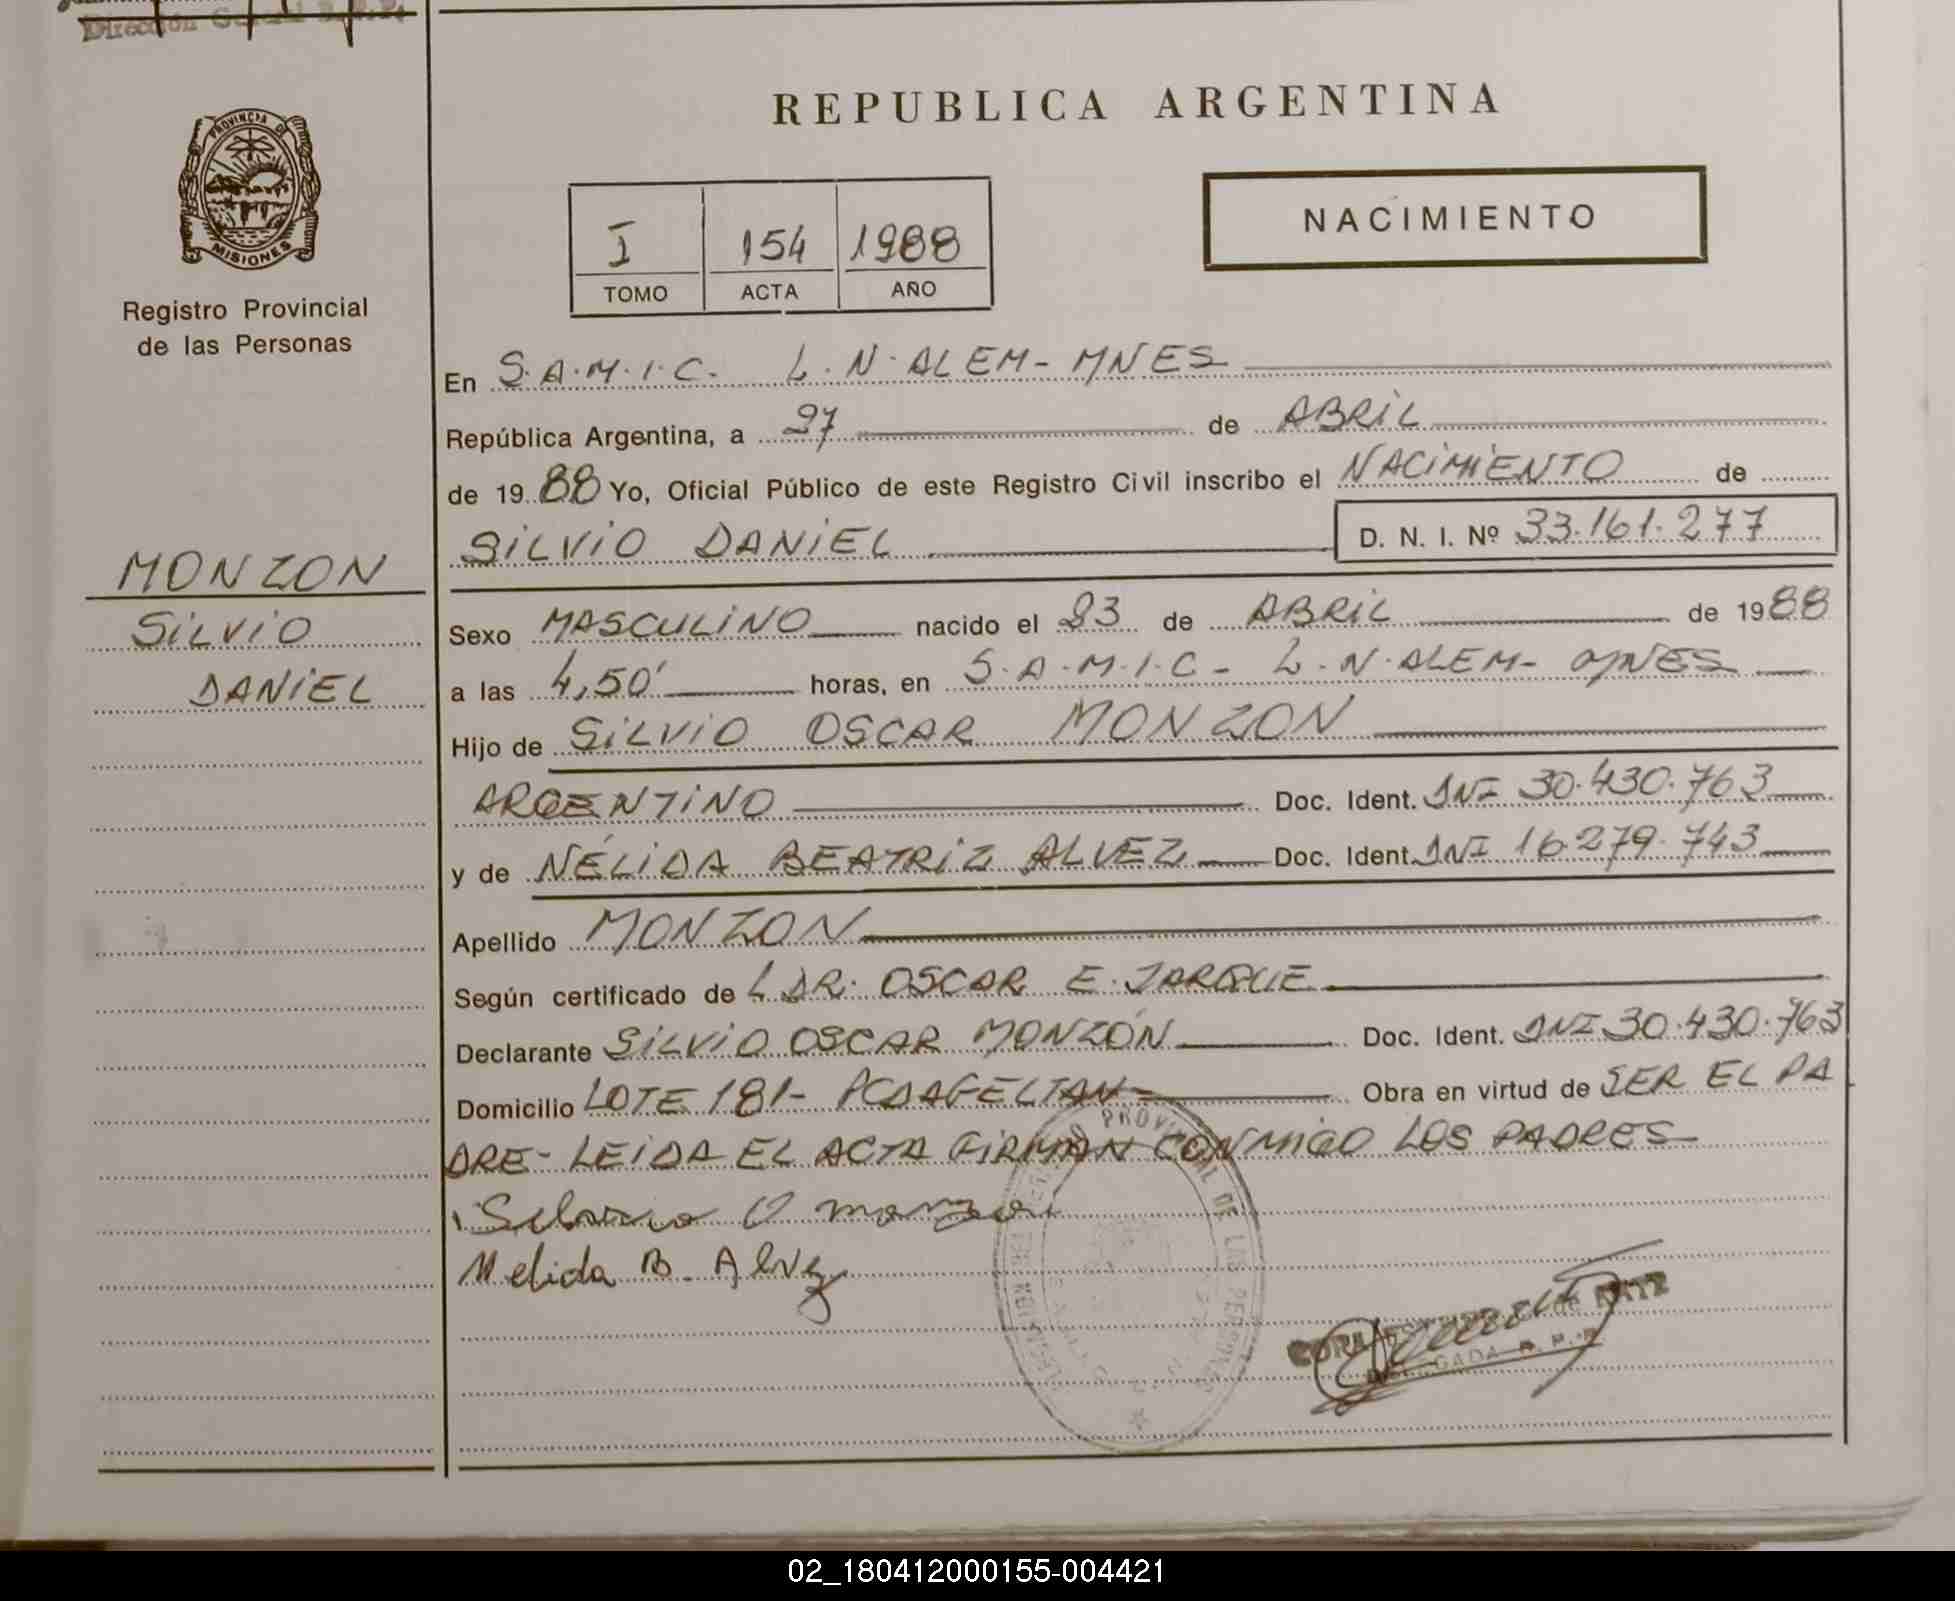 Dirección General R.P.P.
PROVINCIA DE
MISIONES
Registro Provincial
de las Personas
MONZON
SILVIO
DANIEL
REPUBLICA ARGENTINA
I 154 1988
TOMO ACTA AÑO
NACIMIENTO
En S.A.M.I.C. L.N.ALEM-MNES
República Argentina, a 27 de ABRIL
de 1988 Yo, Oficial Público de este Registro Civil inscribo el NACIMIENTO de
SILVIO DANIEL D. N. I. Nº 33.161.277
Sexo MASCULINO nacido el 23 de ABRIL de 1988
a las 4,50' horas, en S.A.M.I.C- L.N.ALEM- MNES
Hijo de SILVIO OSCAR MONZON
ARGENTINO Doc. Ident. DNI 30.430.763
y de NÉLIDA BEATRIZ ALVEZ Doc. Ident. DNI 16.279.743
Apellido MONZON
Según certificado de DR. OSCAR E. JARQUE
Declarante SILVIO OSCAR MONZÓN Doc. Ident. DNI 30.430.763
Domicilio LOTE 181- Obra en virtud de SER EL PA
DRE- LEIDA EL ACTA FIRMAN CONMIGO LOS PADRES
Silvio O monzon
Nelida B. Alvez
PROVINCIAL DE LAS PERSONAS
DELEGADA R. P. P.
02_180412000155-004421